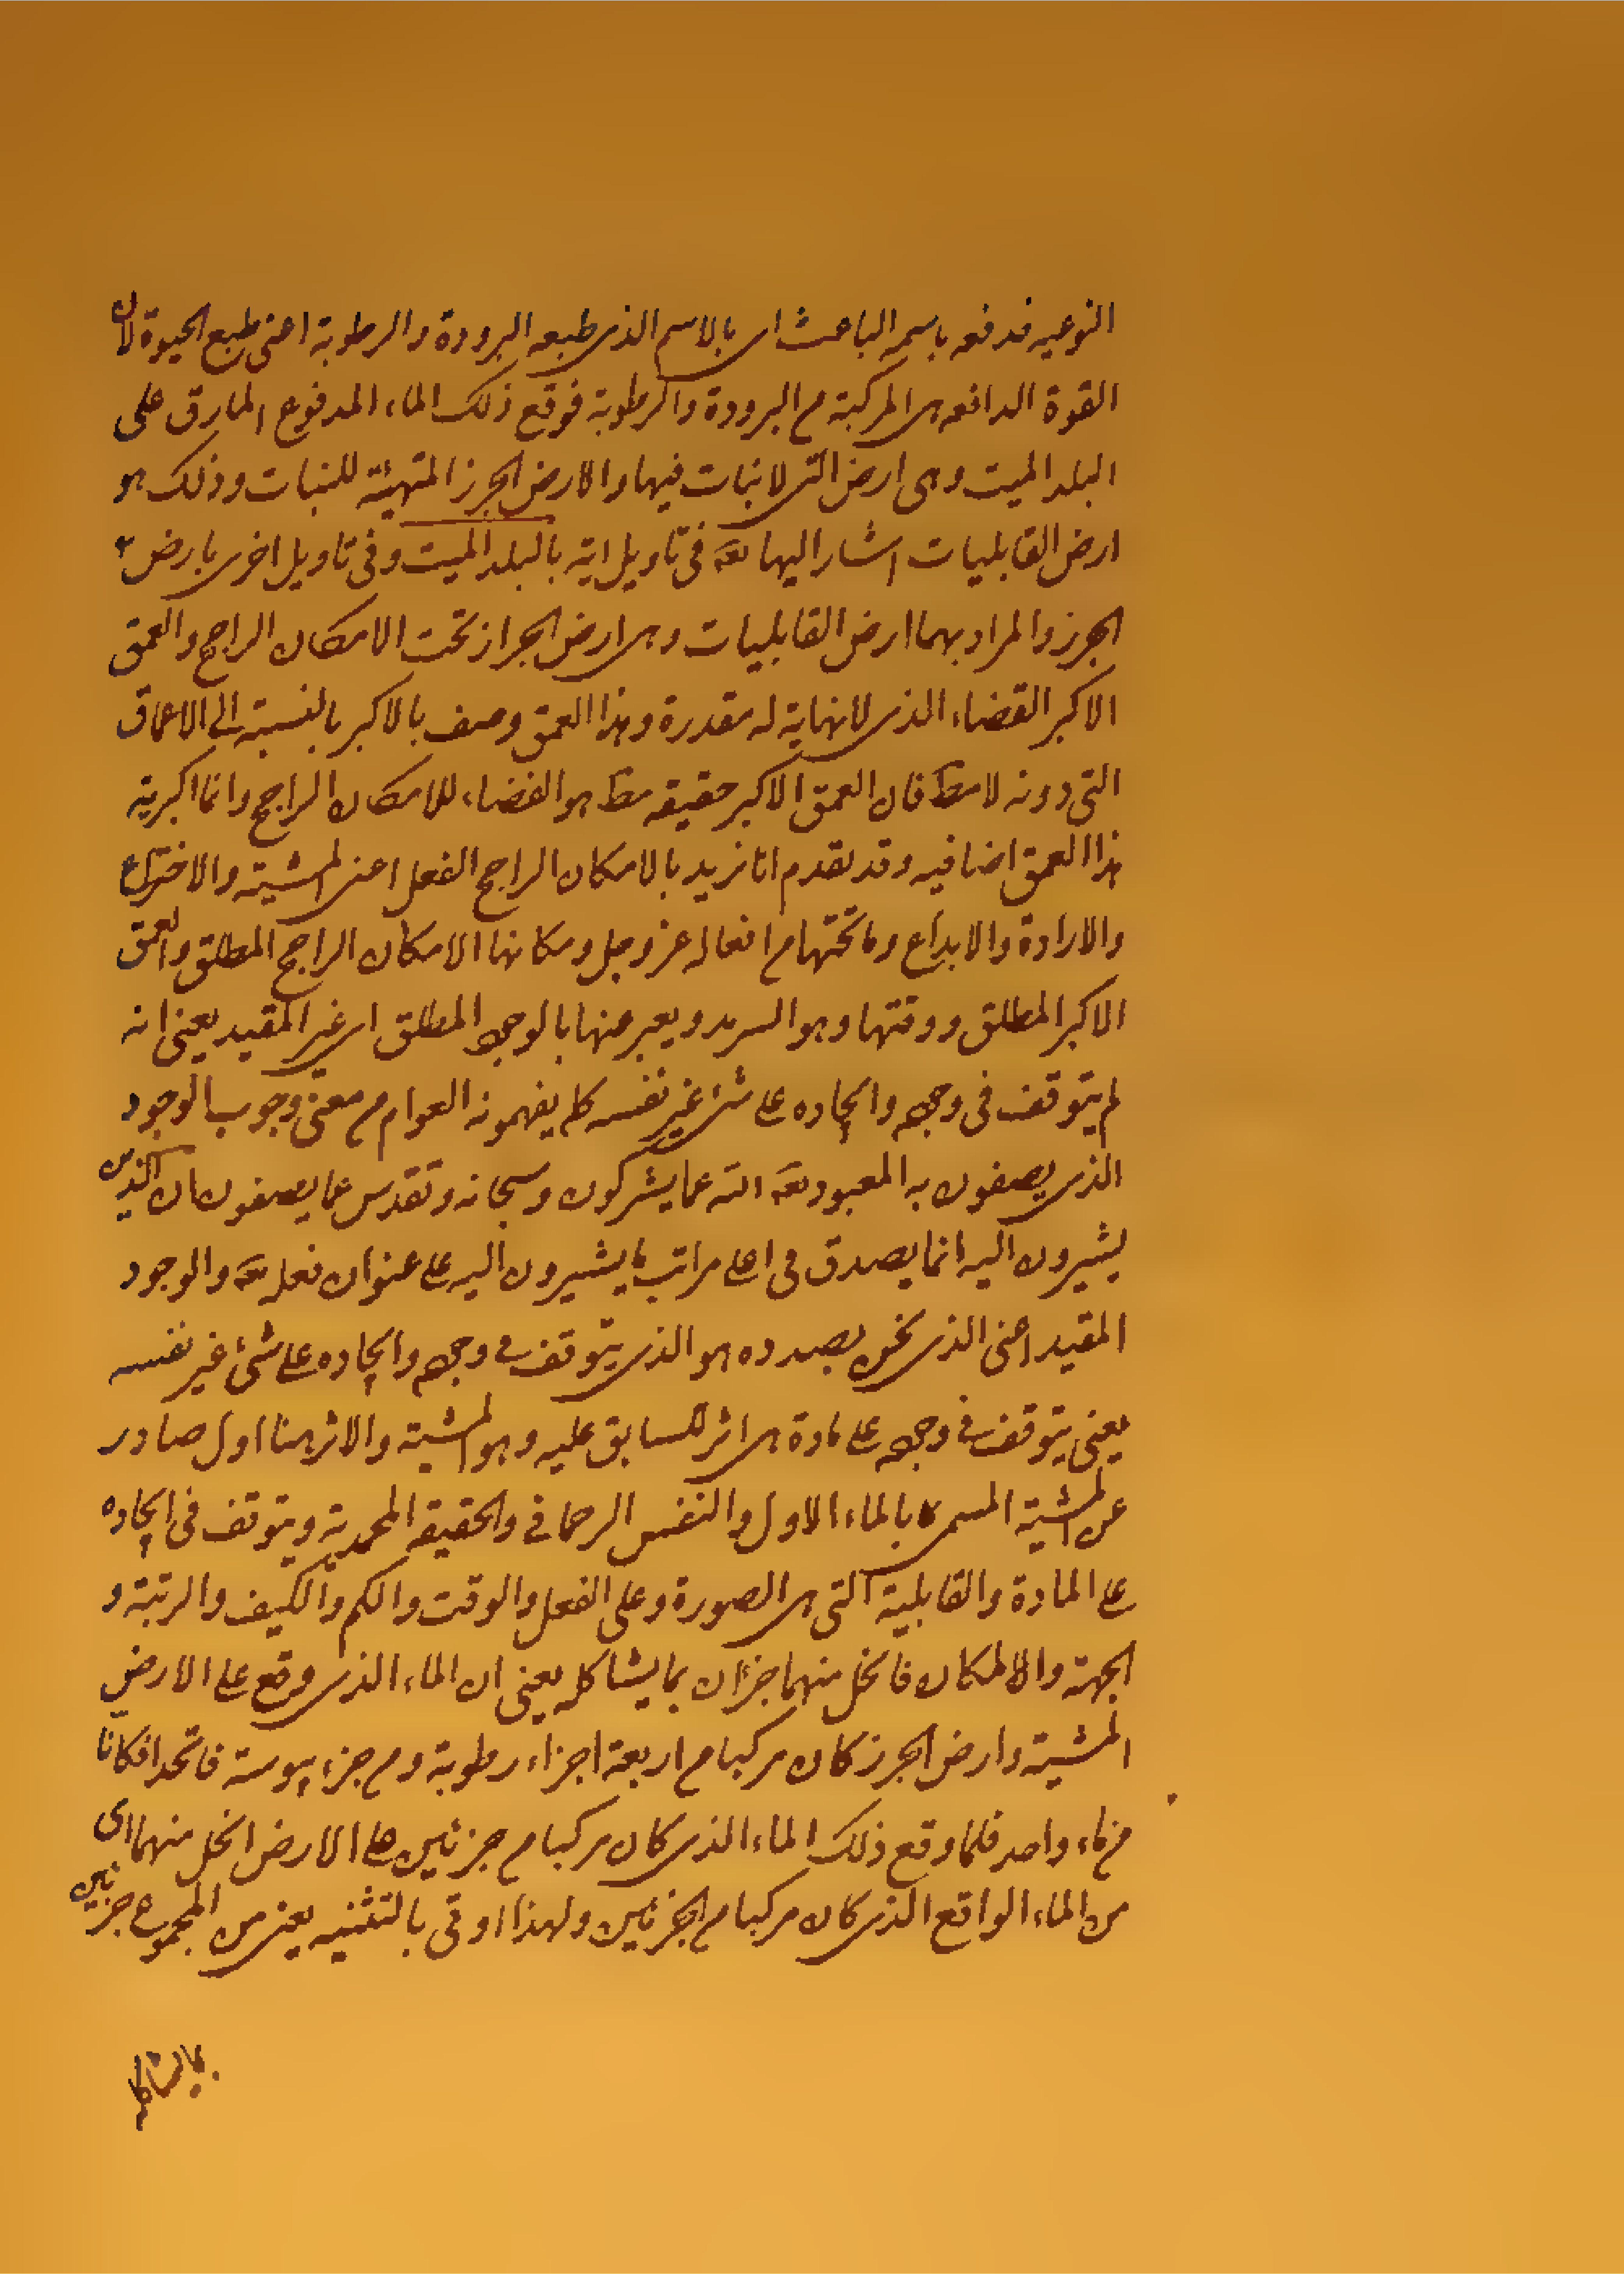 النوعيه فدفعه باسمه الباعث اى بالاسم الذى طبعه البرودة والرطوبة اعنى طبع الحيوة لان
القوة الدافعه هى المركبة من البرودة والرطوبة فوقع ذلك الماء المدفوع المارق على
البلد الميت وهى ارض التى لا نبات فيها والارض الجرز المتهيئة للنبات وذلك هو
ارض القابليات اشار اليها تعه فى تاويل ايه بالبلد الميت وفى تاويل اخرى بارض
الجرز والمراد بهما ارض القابليات وهى ارض الجراز تحت الامكان الراجح والعمق
الاكبر القضاء الذى لا نهاية له مقدرة وهذا العمق وصف بالاكبر بالنسبة الى الاعماق
التى دونه لا مط فان العمق الاكبر حقيقه مط هو الفضاء للامكان الراجح وانما اكبرية
هذا العمق اضافيه وقد تقدم انا نريد بالامكان الراجح الفعل اعنى المشية والاختراع
والارادة والابداع وما تحتها من افعاله عز وجل ومكانها الامكان الراجح المطلق والعمق
الاكبر المطلق ووقتها وهو السرمد ويعبر عنها بالوجه المطلق اى غير المقيد يعنى انه
لم يتوقف فى وجه وايجاده على شئ غير نفسه كلم يفهمونه العوام من معنى وجوب الوجود
الذى يصفون به المعبود تعه الله عما يشركون وسبحانه وتقدس عما يصفون لان الذين
يشيرون اليه انما يصدق فى اعلى مراتب ما يشيرون اليه على عنوان فعله تعه والوجود
المقيد اعنى الذى نحن بصدده هو الذى يتوقف فى وجه وايجاده على شئ غير نفسه
يعنى يتوقف فى وجه على مادة هى اثر للسابق عليه وهو المشية والاثر هنا اول صادر
عن المشية المسمى بالماء الاول والنفس الرحمانى والحقيقه المحمدية ويتوقف فى ايجاده
على المادة والقابلية التى هى الصورة وعلى الفعل والوقت والكم والكيف والرتبة و
الجهة والامكان فانحل منهما جزان بما يشاكله يعنى ان الماء الذى وقع على الارض
المشية وارض الجرز كان مركبا من اربعة اجزاء رطوبة ومن جزء يبوسة فاتحدا فكانا
من ماء واحد فلما وقع ذلك الماء الذى كان مركبا من جزئين على الارض انحل منهما اى
من الماء الواقع الذى كان مركبا من الجزئين ولهذا اوتى بالتثنيه يعنى من المجموع جزئين
بما يشاكله